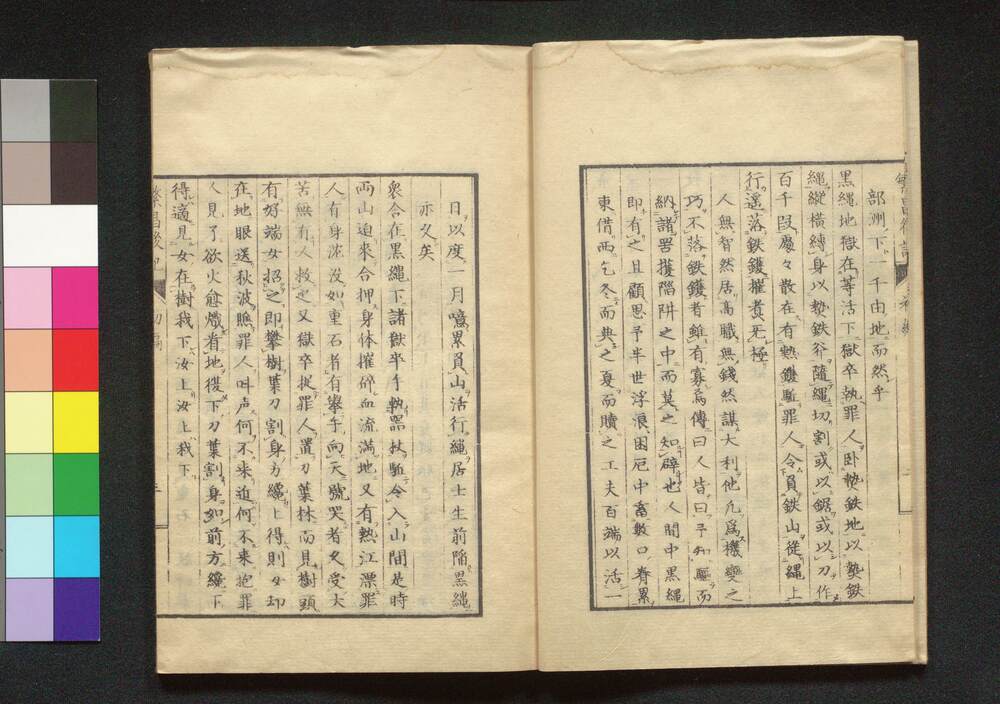 部洲下一千由地而然乎
黒繩地獄在等活下獄卒執罪人臥熱鉄地以熱鉄
繩縱橫縛身以熱鉄斧隨繩切割或以鋸或以刀作
百千段處々散在有熱鑊駈罪人令負鉄山從繩上
行遙落鉄鑊摧煮无極
人無智然居高職無錢然謀大利他凡爲機變之
巧不落鉄鑊者鮮有寡焉傳曰人皆曰予知驅而
納諸罟擭陷阱之中而莫之知辟也人間中黒繩
即有之且顧思予半世浮浪困厄中畜數口眷累
東借西乞冬而典之夏而贖之工夫百端以活一
日以度一月噫累負山活行繩居士生前陷黒繩
亦久矣
衆合在黒繩下諸獄卒手執器杖駈令入山間是時
両山迫来合押身体摧碎血流満地又有熱江漂罪
人有身沈没如重石者有擧手向天號哭者久受大
苦無有人救之又獄卒捉罪人置刀葉林而見樹頭
有好端女招之即攀樹葉刀割身方纔上得則女却
在地眼送秋波瞧罪人叫声何不来迫何不来抱罪
人見了欲火愈熾着地復下刀葉割身如前方纔下
得適見女在樹我下汝上汝上我下
繁昌後記 初編